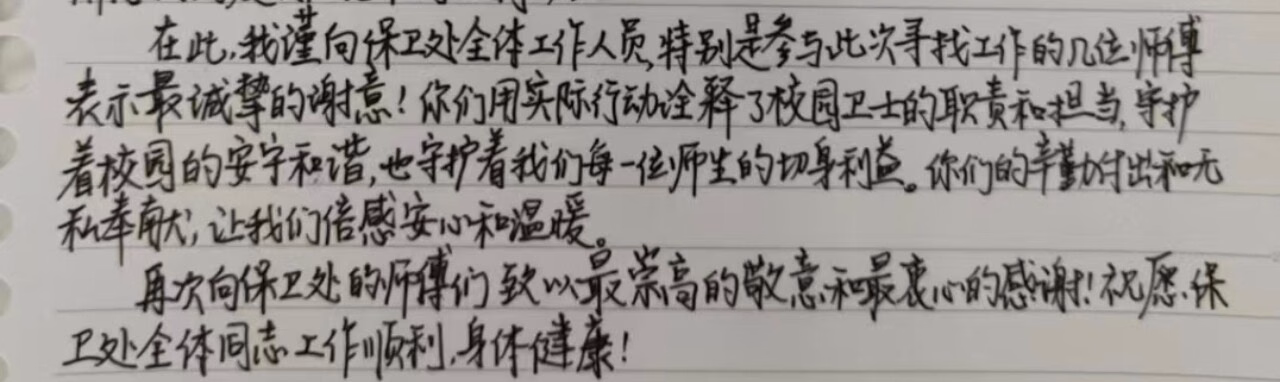 在此,我谨向保卫处全体工作人员,特别是参与此次寻找工作的几位师傅
表示最诚挚的谢意!你们用实际行动诠释了校园卫士的职责和担当,守护
着校园的安宁和谐,也守护着我们每一位师生的切身利益。你们的辛勤付出和无
私奉献,让我们倍感安心和温暖。
再次向保卫处的师傅们致以最崇高的敬意和最衷心的感谢!祝愿保
卫处全体同志工作顺利,身体健康!